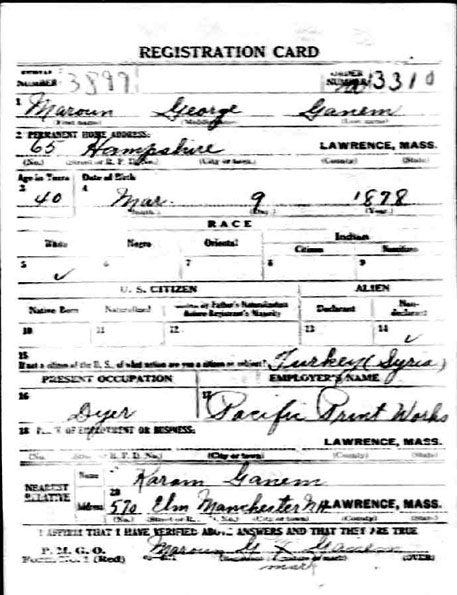 REGISTRATION CARD
SERIAL NUMBER 3899 ORDER NUMBER 3310
1 Maroun George Ganem
(First name) (Middle name) (Last name)
2 PERMANENT HOME ADDRESS:
65 Hampshire LAWRENCE, MASS.
(No.) (Street or R. F. D. No.) (City or town) (County) (State)
Age in Years Date of Birth
3 40 4 Mar. 9 1878
(Month.) (Day.) (Year.)
RACE
White Negro Oriental Indian
Citizen Noncitizen
5 ✓ 6 7 8 9
U. S. CITIZEN ALIEN
Native Born Naturalized Citizen by Father's Naturalization Before Registrant's Majority Declarant Non-declarant
10 11 12 13 14 ✓
15 If not a citizen of the U. S., of what nation are you a citizen or subject? Turkey (Syria)
PRESENT OCCUPATION EMPLOYER'S NAME
16 Dyer 17 Pacific Print Works
18 PLACE OF EMPLOYMENT OR BUSINESS:
LAWRENCE, MASS.
(No.) (Street or R. F. D. No.) (City or town) (County) (State)
NEAREST RELATIVE Name 19 Karam Ganem
Address 20 570 Elm Manchester N.H. LAWRENCE, MASS.
(No.) (Street or R. F. D. No.) (City or town) (County) (State)
I AFFIRM THAT I HAVE VERIFIED ABOVE ANSWERS AND THAT THEY ARE TRUE
P. M. G. O. Maroun G X Ganem
Form No. 1 (Red) (Registrant's signature or mark) (OVER)
mark